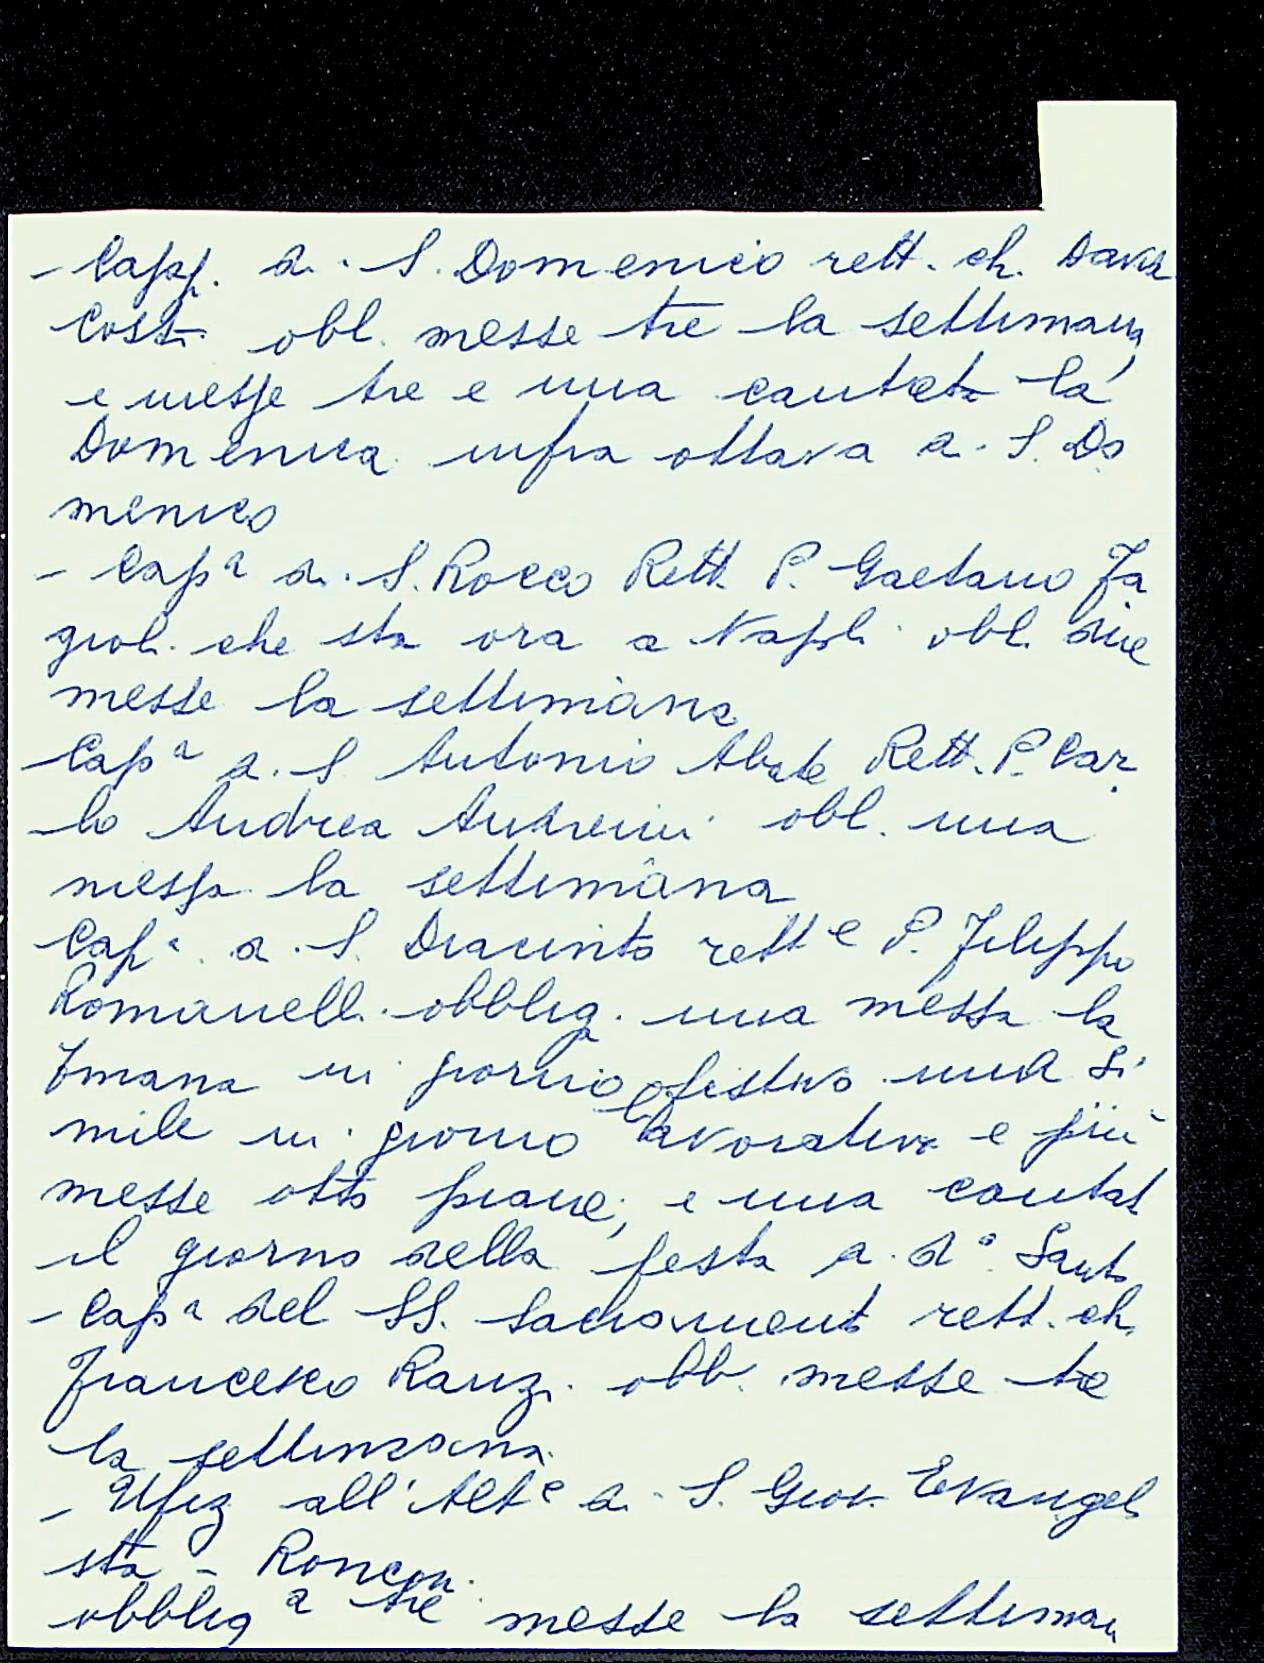 - Capp. d. S. Domenico rett. ch. David
Costi obl. messe tre la settimana
e messe tre e una cantata la
Domenica infra ottava d. S. Do
menico
- Cap.a d. S. Rocco Rett. P. Gaetano Fa
gioli che sta ora a Napoli obl. due
messe la settimana
Cap.a d. S Antonio Abate Rett. P. Car
lo Andrea Andreini obl. una
messa la settimana
Cap.a d. S. Diacinto rett.e P. Filippo
Romanelli obblig. una messa la
7mana in giorno festivo una si
mile in giorno lavorativo e più
messe otto piane, e una cantat
il giorno della festa d. d.o Santo
- Cap.a del SS. Sacramento rett. ch.
Francesco Ranzi obb. messe tre
la settimana
- Ufiz all'Alt.e d. S. Giov. Evangeli
sta - Ronconi
obblig.a tre messe la settiman